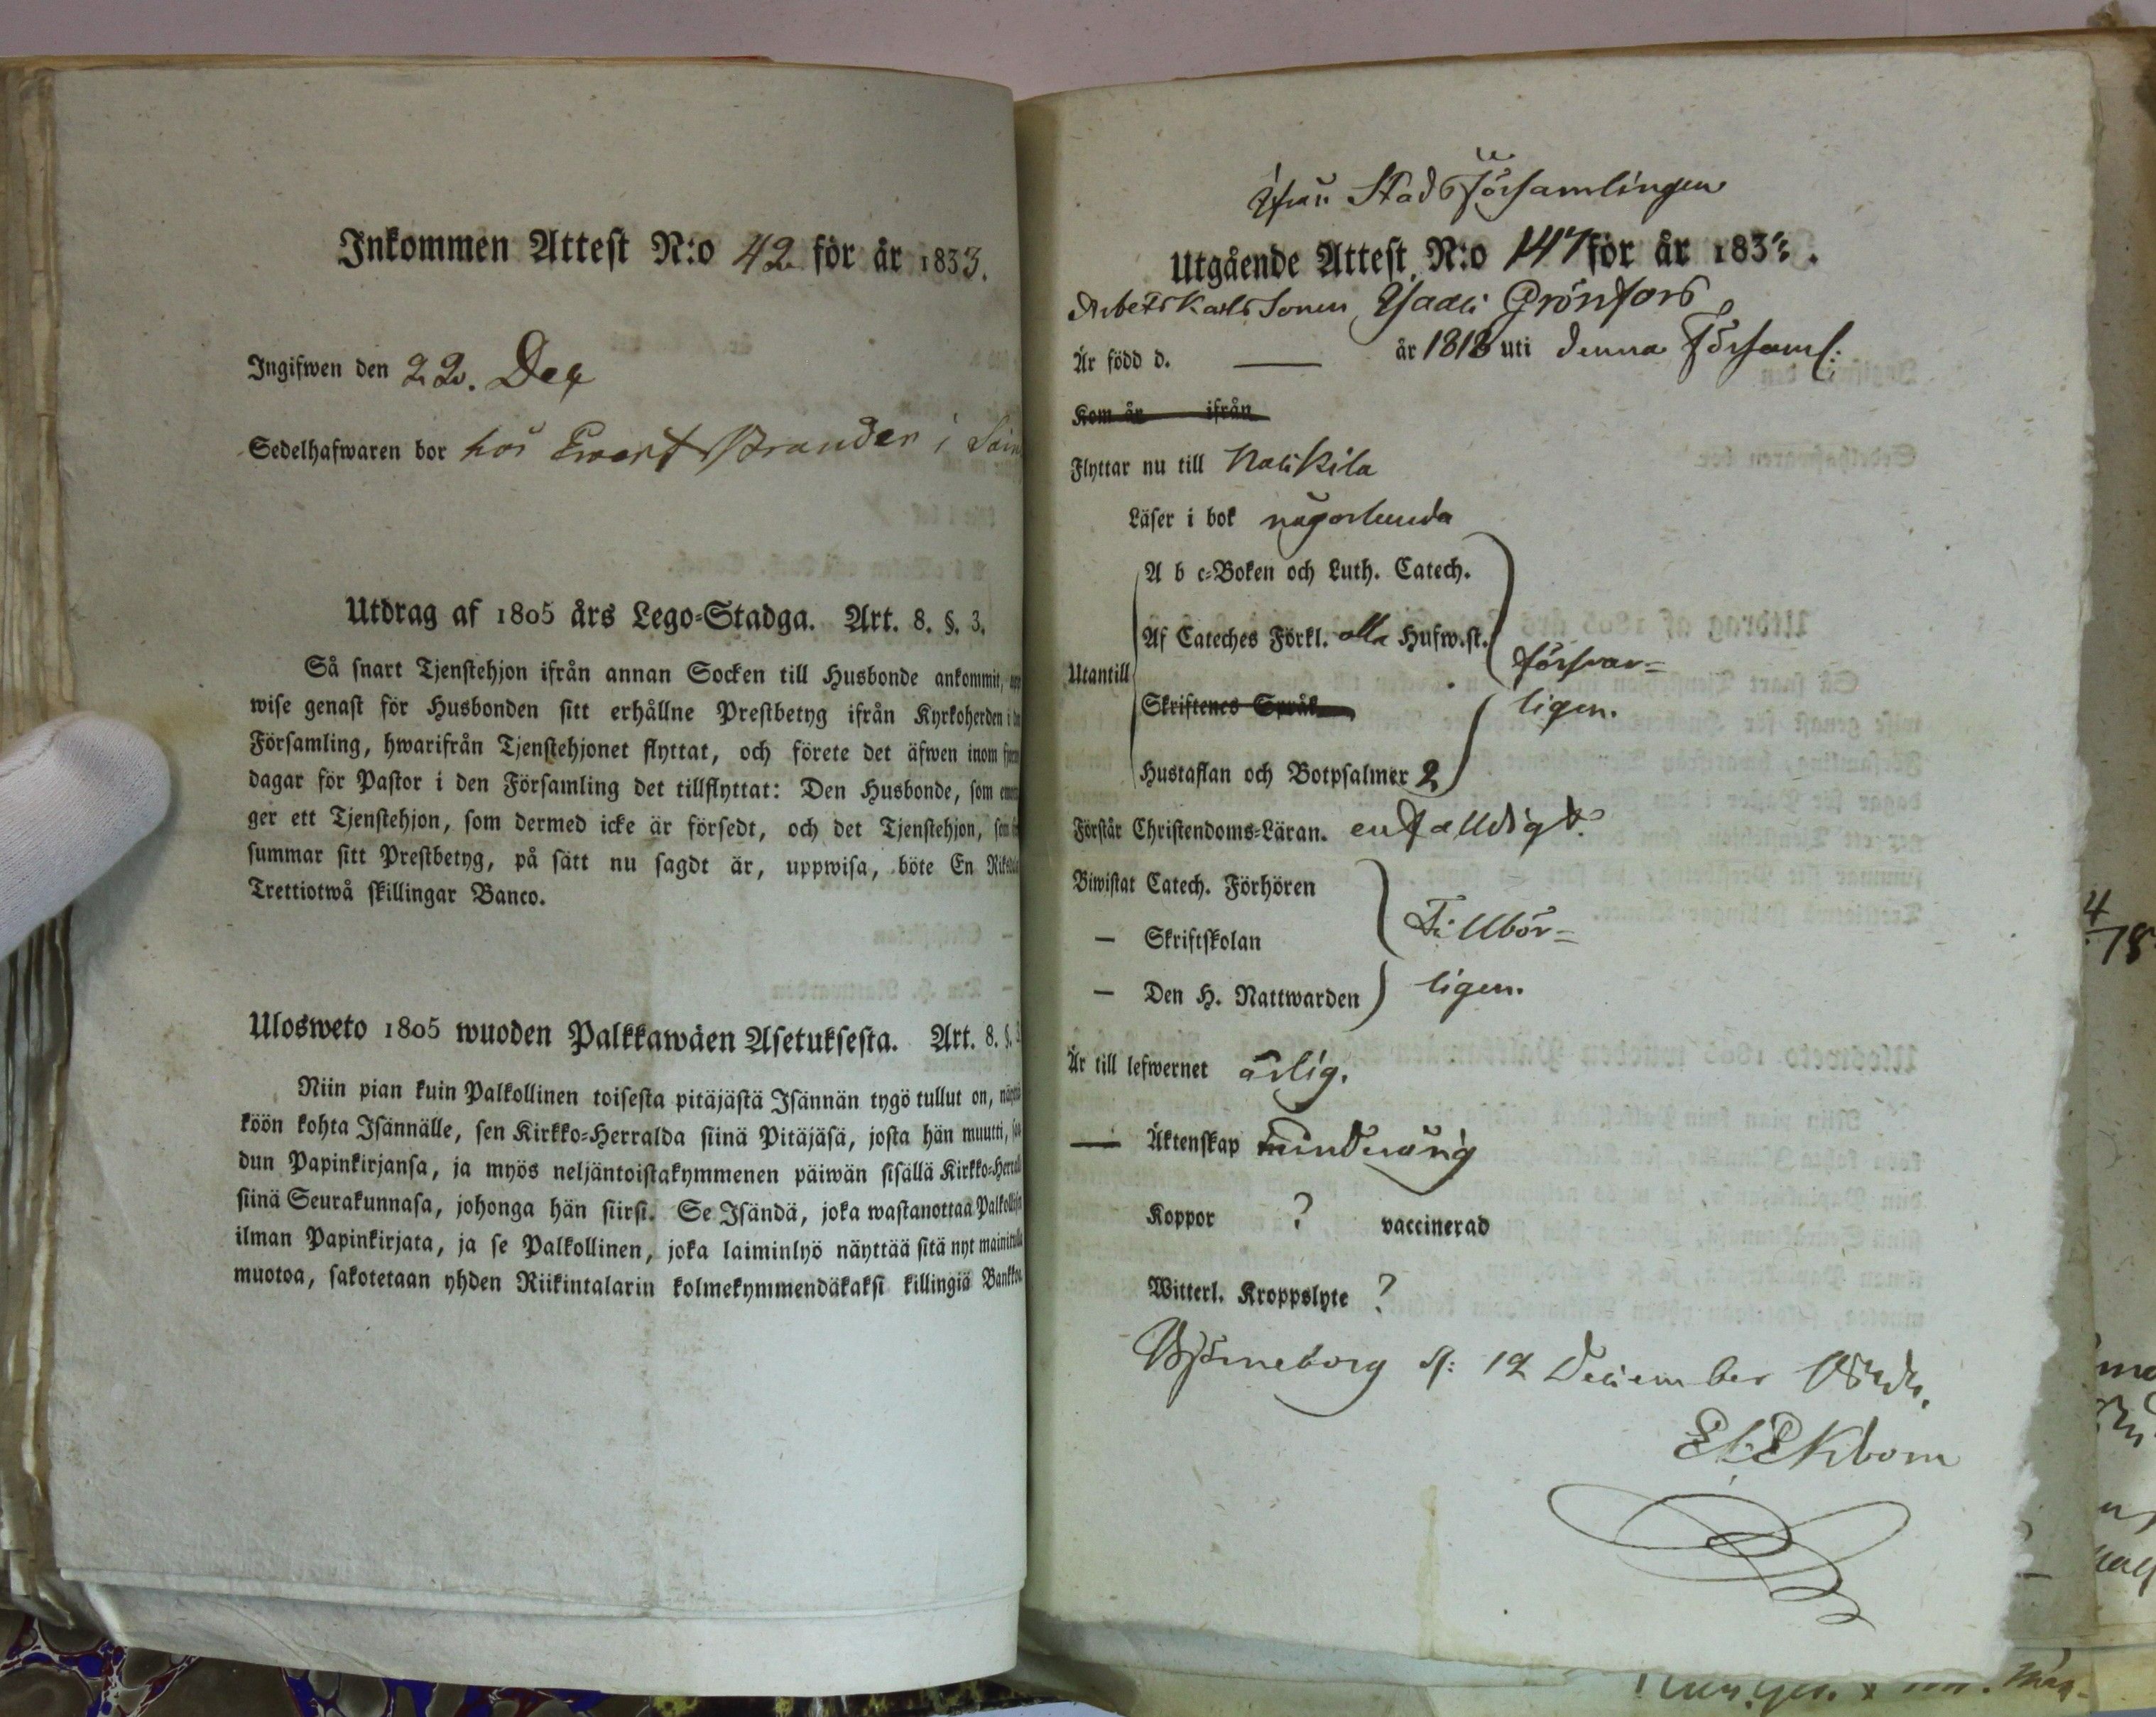 Inkommen Attest N:o 42 för år 1833.
Ingifwen den 22. Dec
Sedelhafwaren bor hos Ewert Strander i
Utdrag af 1805 års Lego-Stadga. Art. 8. §. 3.
Så snart Tjenstehjon ifrån annan Socken till Husbonde ankommit,
wise genast för Husbonden sitt erhållne Prestbetyg ifrån Kyrkoherden i
Församling, hwarifrån Tjenstehjonet flyttat, och förete det äfwen inom
dagar för Pastor i den Församling det tillflyttat: Den Husbonde, som
ger ett Tjenstehjon, som dermed icke är försedt, och det Tjenstehjon,
summar sitt Prestbetyg, på sätt nu sagdt är, uppwisa, böte En
Trettiotwå skillingar Banco.
Ulosweto 1805 wuoden Palkkawäen Asetuksesta. Art. 8. §.
Niin pian kuin Palkollinen toisesta pitäjästä Isännän tygö tullut on,
köön kohta Isännälle, sen Kirkko-Herralda siinä Pitäjäsä, josta hän muutti,
dun Papinkirjansa, ja myös neljäntoistakymmenen päiwän sisällä Kirkko-
siinä Seurakunnasa, johonga hän siirsi. Se Isändä, joka wastanottaa
ilman Papinkirjata, ja se Palkollinen, joka laiminlyö näyttää sitä nyt
muotoa, sakotetaan yhden Riikintalarin kolmekymmendäkaksi killingiä
ifrån Stadsförsamlingen
Utgående Attest N:o 147 för år 183
Arbets Karls Sonen Isack Grönfors
Är född d. — år 1818 uti denna Församl:
Kom år ifrån
Flyttar nu till Nakkila
Läser i bok någorlunda
A b c-Boken och Luth. Catech.
Af Cateches Förkl. alla Hufw.st.
försvar=
Utantill
Skriftenes Språk
ligen.
Hustaflan och Botpsalmer 2
Förstår Christendoms-Läran. enfalldigt.
Biwistat Catech. Förhören
— Skriftskolan
Tillbör=
— Den H. Nattwarden
ligen.
Är till lefwernet ärlig.
— Äktenskap minderårig
Koppor ? vaccinerad
Witterl. Kroppslyte ?
Björneborg d: 12 December
Ekbom